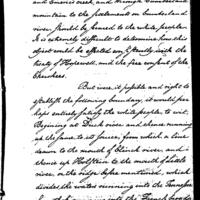 and Emeries creek, and through Cumberland
mountain to the settlement on Cumberland
river, should be leased to the white people.
It is extremely difficult to determine how this
object could be effected consistently with the
treaty of Hopewell, and the free consent of the
Cherokees.
But were it possible and right to
establish the following boundary, it would per
haps entirely satisfy the white people, to wit.
Begining at Duck river and thence running
as the same to its source, from which a line
drawn to the mouth of Clinch river, and
thence up Holstein to the mouth of Little
river, on the ridge before mentioned, which
divides the waters running into the Tennessee
into the French broad